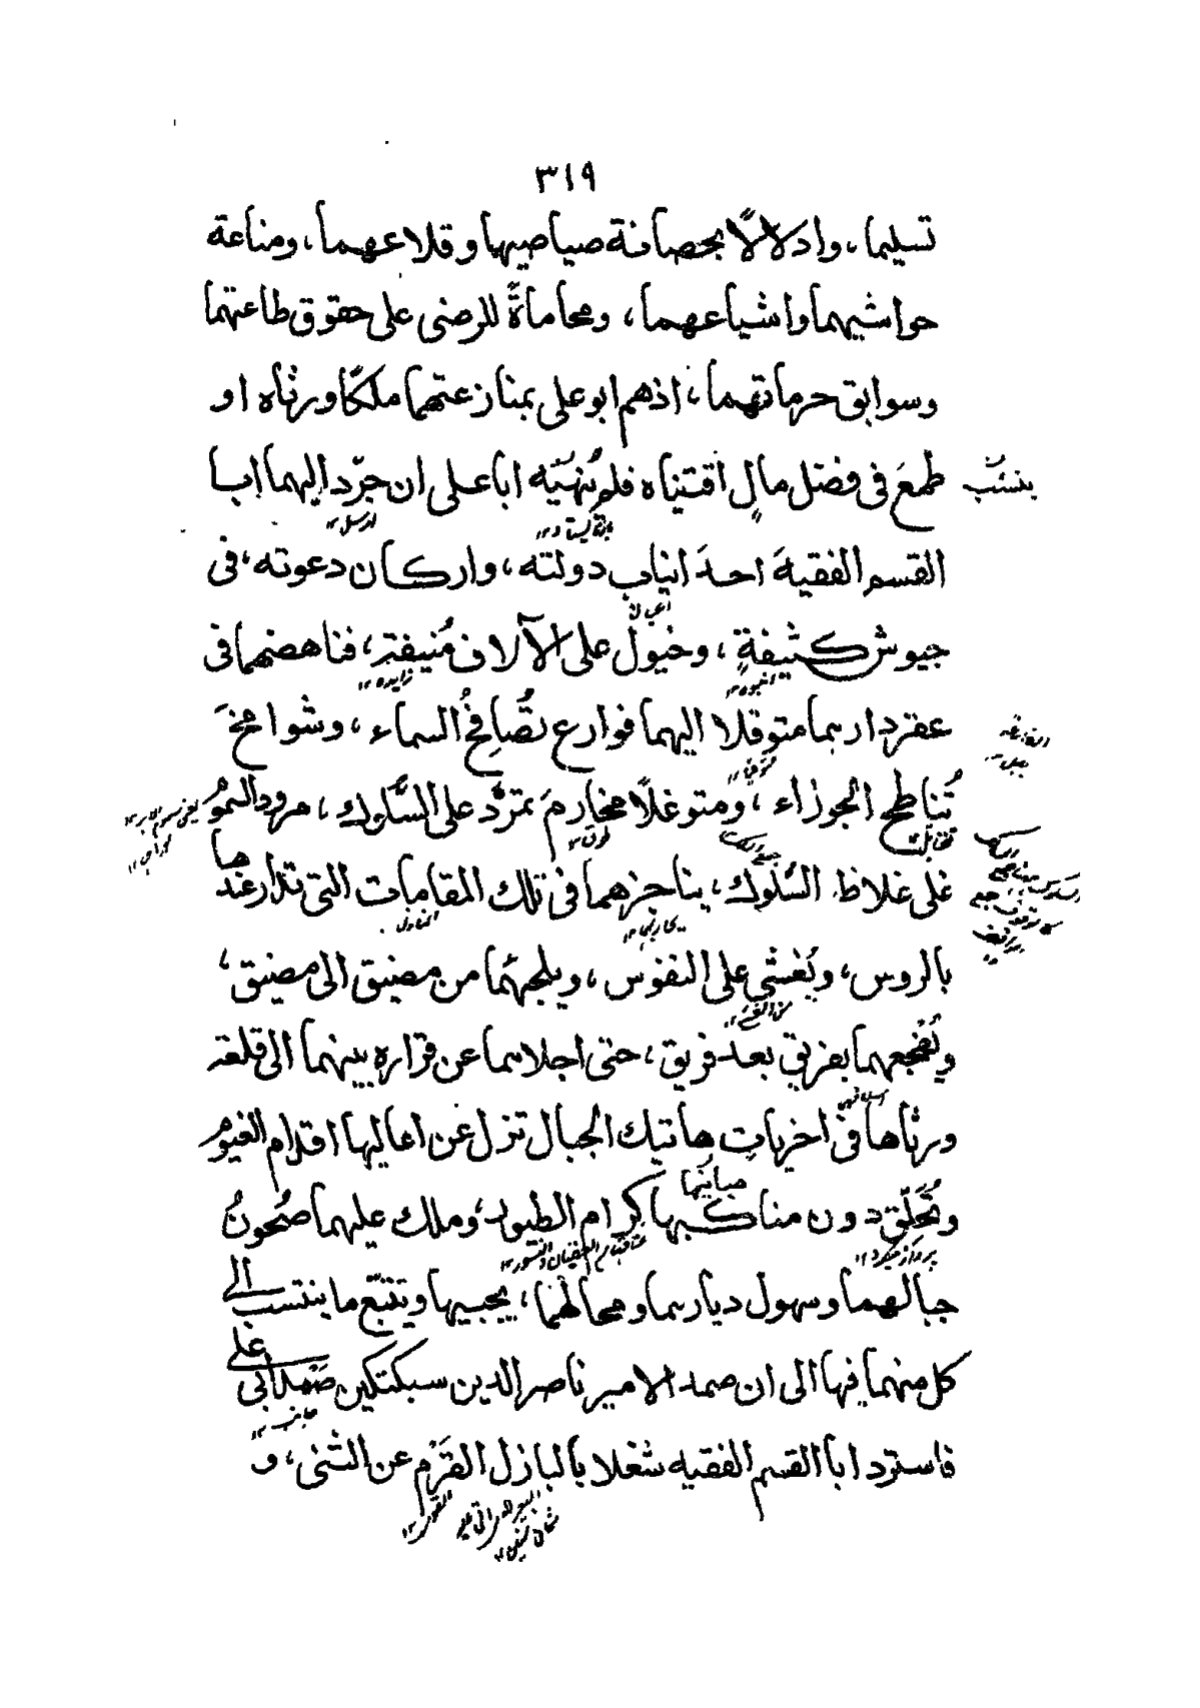 ٣١٩
تسليما، وادلالًا بحصانة صياصيها وقلاعهما، ومناعة
حواشيهما واشياعهما، ومحاماةً للرضى على حقوق طاعتهما
وسوابق حرماتهما، اذهم ابو على بمنازعتهما ملكًا ورثاه او
طمعَ فى فضل مالٍ اقتنياه فلم يُنهيّه ابا على ان جرّد اليهما ابا
بنسبٍ
ارسل
القسم الفقيهَ احدَ انياب دولته، واركان دعوته، فى
جيوش كثيفةٍ، وخيول على الآلاف مُنيفة، فناهضهما فى
انبوه
زايده
عقر دارهما متوقلا اليهما فوارع تُصافحُ السماء، وشوامخَ
تُناطح الجوزاء، ومتوغلًا مخارمَ تمرّد على السُّلوك، مرود السمومُ
على غلاظ السُّلوك، يناجزهما فى تلك المقامات التى تدار عندها
بالروس، ويُغشى على النفوس، ويلجئهما من مضيق الى مضيق،
ويُفجعهما بفريق بعد فريق، حتى اجلاهما عن قراره بينهما الى قلعة
ورثاها فى اخريات هاتيك الجبال تزل عن اعاليها اقدام الغيوم
وتُحَلّق دون مناكبها كرام الطيور، وملك عليهما صُحونُ
جبالهما وسهول ديارهما ومحالهما، يجبيها ويتتبّع ما ينتسب الى
كل منهما فيها الى ان صمد الامير ناصر الدين سبكتكين صَمْدَ ابى على
فاسترد ابا القسم الفقيه شغلا بالبازل القَرْم عن الثنى، و